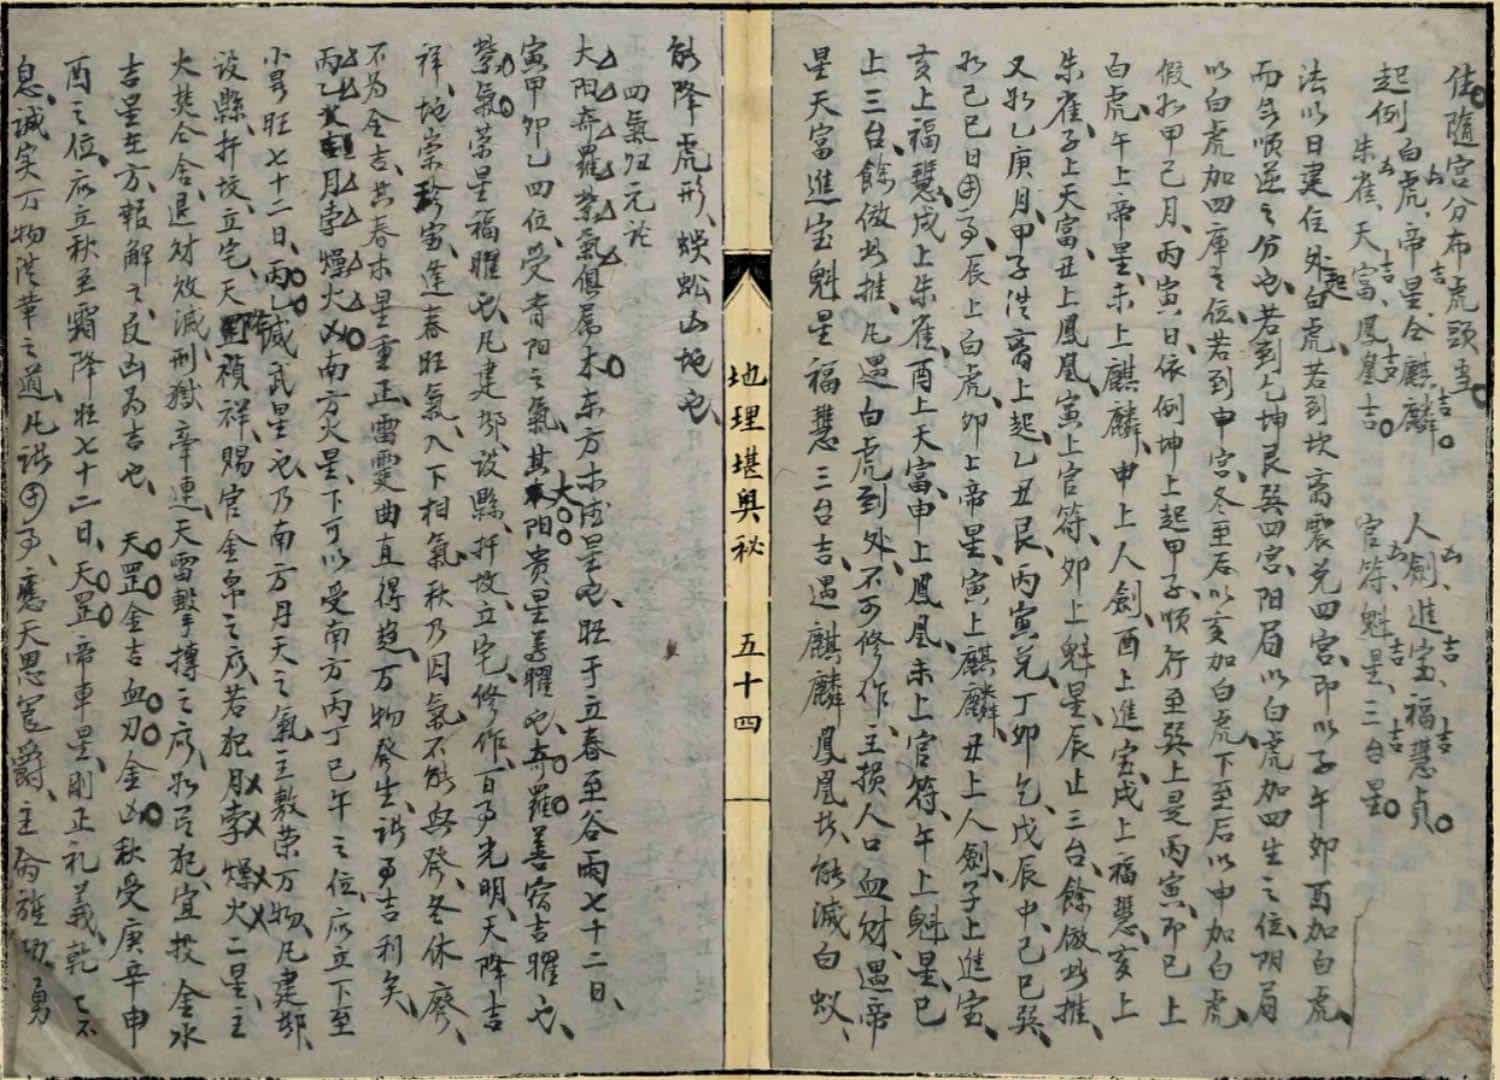 住隨宮分布虎頭黃
起例 白虎凶、帝星吉、金麒麟吉。 人劍凶、進宝吉、福慧貞吉。
朱雀凶、天富吉、鳳凰吉。 官符凶、魁星吉、三台星吉。
法以日建住外起白虎、若到坎离震兌四宮、即以子午卯酉加白虎、
而分順逆之分也、若到乾坤艮巽四宮、阳局以白虎加四生之位、阴局
以白虎加四庫之位、若到中宮、冬至后以亥加白虎、下至后以申加白虎、
假如甲己月、丙寅日、依例坤上起甲子、順行至巽上是丙寅、即巳上
白虎、午上帝星、未上麒麟、申上人劍、酉上進宝、戌上福慧、亥上
朱雀、子上天富、丑上鳳凰、寅上官符、卯上魁星、辰上三台、餘倣此推、
又如乙庚月、甲子從离上起、乙丑艮、丙寅兌、丁卯乾、戊辰中、己巳巽、
如己巳日用事、辰上白虎、卯上帝星、寅上麒麟、丑上人劍、子上進宝、
亥上福慧、戌上朱雀、酉上天富、申上鳳凰、未上官符、午上魁星、巳
上三台、餘倣此推、凡遇白虎到处、不可修作、主損人口血财、遇帝
星天富進宝魁星福慧三台吉、遇麒麟鳳凰状、能滅白蚁、
地理堪輿秘 五十四
能降虎形、蜈蚣山地也、
四氣归元论
太阳奇羅紫氣俱屬木、东方木德星也、旺于立春至谷雨七十二日、
寅甲卯乙四位、受青阳之氣、其太阳貴星善曜也、奇羅善宿吉曜也、
紫氣荣星福曜也、凡建都、設縣、扦坟立宅、修作、百事光明、天降吉
祥、地崇珍宝、逢春旺氣、入下相氣、秋乃囚氣、不能與發、冬休廢、
不为全吉、其春木星重正、雷霆曲直得趋、万物發生、诸事吉利矣、
丙乙火星月孛燥火凶、南方火星、下可以受南方丙丁巳午之位、应立下至
小暑旺七十二日、丙乙咸武星也、乃南方丹天之氣、主敷荣万物、凡建都、
設縣、扦坟、立宅、天降禎祥、賜官金帛之应、若犯月孛燥火二星、主
火焚仓舍、退财败滅、刑獄牵連、天雷擊搏之应、如已犯、宜投金水
吉星在方、報解之、反凶为吉也、 天罡金吉 血刃金凶 秋受庚辛申
酉之位、应立秋至霜降旺七十二日、天罡帝車星、則正礼義、乾乾不
息、誠实万物從華之道、凡诸用事、應天恩冕爵、主俞旌功勇